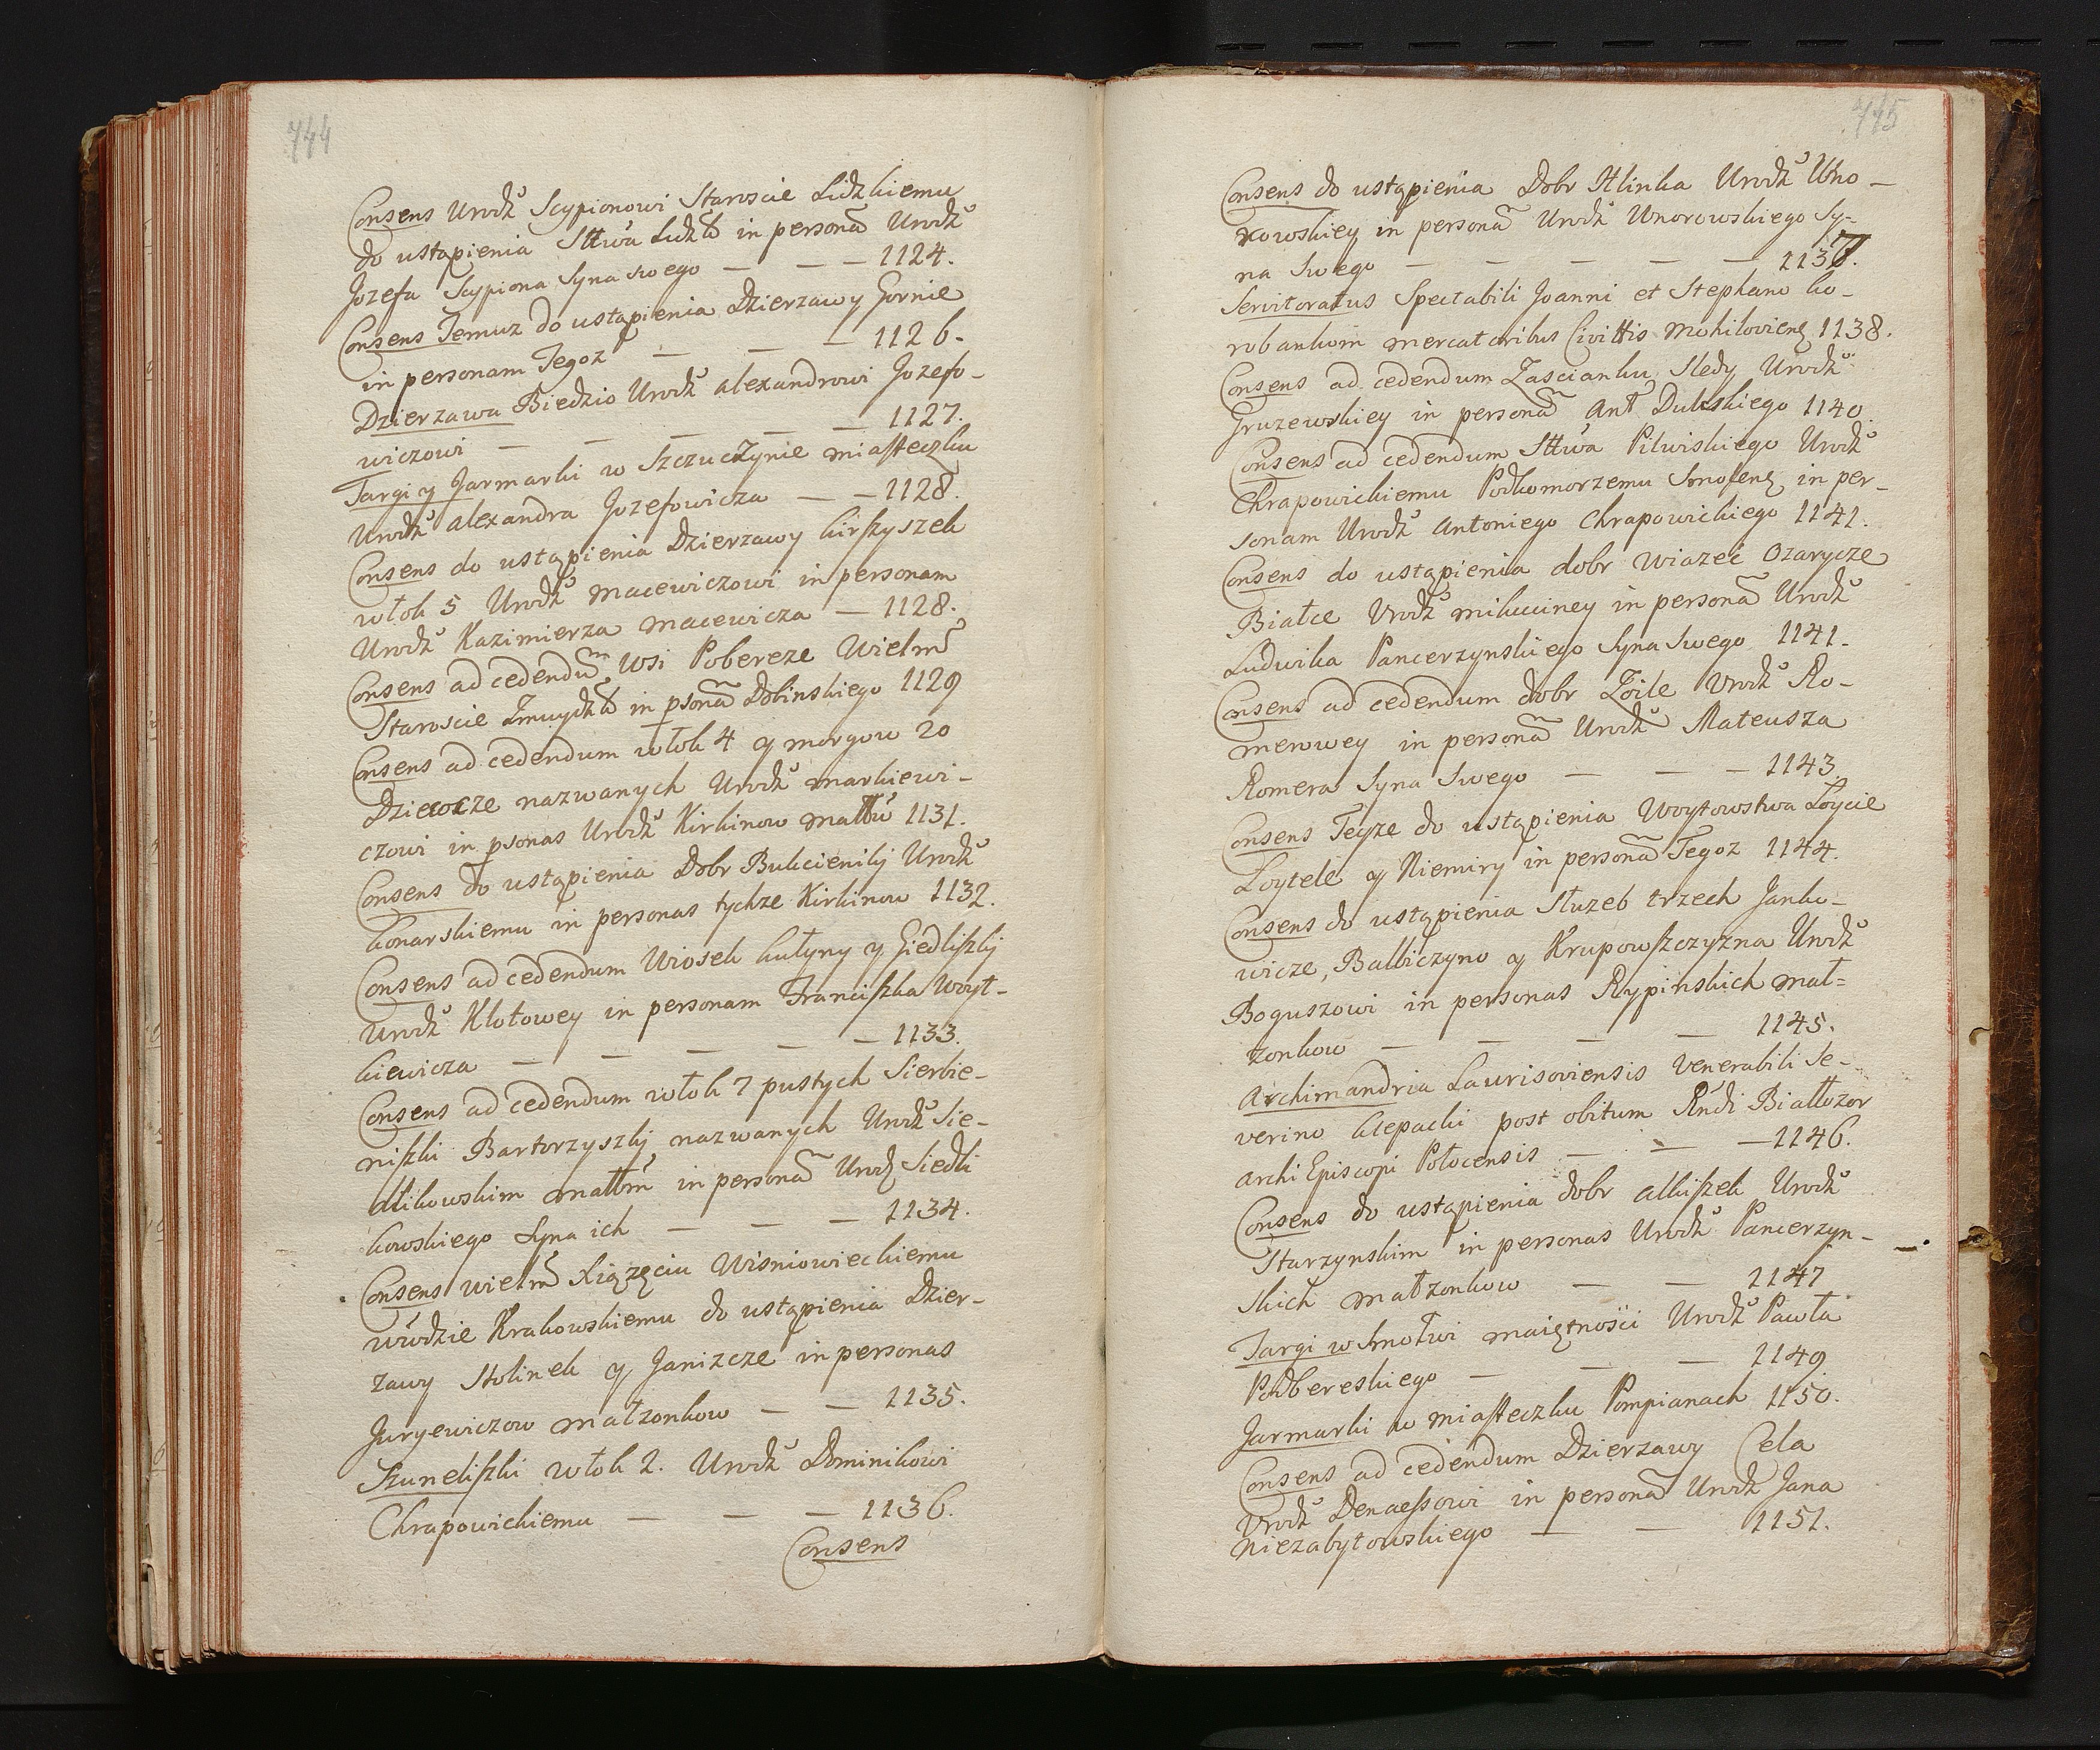 744
Consens Urodź Scypionowi Staroscie Lidzkiemu
do ustąpienia Sttwa Lidzk in persona͠ Urodź
Jozefa Scypiona Syna swego — — — 1124.
Consens Temuz do ustąpienia Dzierzawy Gornie
in personam Tegoz — — — 1126.
Dzierzawa Biedzio Urodź alexandrowi Jozefo-
wiczowi — — — — — 1127.
Targi y Jarmarki w Szczuczynie miasteczku
Urodź alexandra Jozefowicza — — 1128.
Consens do ustąpienia Dzierzawy kirszyszek
włok 5 Urodź macewiczowi in personam
Urodź Kazimierza macewicza — 1128.
Consens ad cedendum Wsi Pobereze Wielm
Staroscie Zmuydzk in psona͠ Dobinskiego 1129
Consens ad cedendum włok 4 y morgow 20
Dziewcze nazwanych Urodź markiewi-
czowi in psonas Urodź Kirkinow małłw 1131.
Consens do ustąpienia Dobr Bukcienikij Urodź
konarskiemu in personas tychze Kirkinow 1132.
Consens ad cedendum Wiosek kutyny y Giedliszkij
Urodź Kłotowey in personam Franciszka Woyt-
kiewicza — — — — — 1133.
Consens ad cedendum włok 7 pustych Sierbie-
niszki Bartorzyszkij nazwanych Urodź Sie-
dlikowskim małłm in persona͠ Urodź Siedli
kowskiego Syna ich — — — 1134.
Consens wielm Xiążęciu Wisniowieckiemu
wwodzie Krakowskiemu do ustąpienia Dzier-
zawy Stolinek y Janiszcze in personas
Juryewiczow małzonkow — — 1135.
Szuneliszki włok 2. Urodź Dominikowi
Chrapowickiemu — — — 1136.
Consens
745
Consens do ustąpienia Dobr Hlinka Urodź Uno-
rowskiey in persona͠ Urodź Unorowskiego Sy-
na Swego — — — — — 1137.
Servitoratus Spectabili Joanni et Stephano ko-
robankom mercatoribus Civittis Mohilovienę 1138.
Consens ad cedendum Zascianku Sledy Urodź
Gruzewskiey in persona͠ Ant Dulskiego 1140.
Consens ad cedendum Sttwa Pilwiskiego Urodź
Chrapowickiemu Podkomorzemu Smolenę in per-
sonam Urodź Antoniego Chrapowickiego 1141.
Consens do ustąpienia dobr Wiazeć Ozarycze
Białce Urodź mikuciney in persona͠ Urodź
Ludwika Pancerzynskiego Syna Swego 1141.
Consens ad cedendum dobr Zoile Urodź Ro-
merowey in persona͠ Urodź Mateusza
Romera Syna Swego — — — 1143.
Consens Teyze do ustąpienia Woytowstwa Łoycie
Loytele y Niemiry in persona͠ Tegoz 1144.
Consens do ustąpienia Sluzeb trzech Janko-
wicze, Balbiczyno y Krupowszczyzna Urodź
Boguszowi in personas Rypinskich mał=
zonkow — — — — 1145.
Archimandria Laurisoviensis Venerabili Se-
verino klepacki post obitum Rńdi Białłozor
Archi Episcopi Połocensis — — — 1146.
Consens do ustąpienia dobr alkiszek Urodź
Starzynskim in personas Urodź Pancerzyn-
skich małzonkow — — 1147
Targi w Smołwi maiętnosci Urodź Pawła
Podbereskiego — — — 1149
Jarmarki w miasteczku Pompianach 1150.
Consens ad cedendum Dzierzawy Cela
Urodź Denaessowi in persona͠ Urodź Jana
Niezabytowskiego — — 1151.